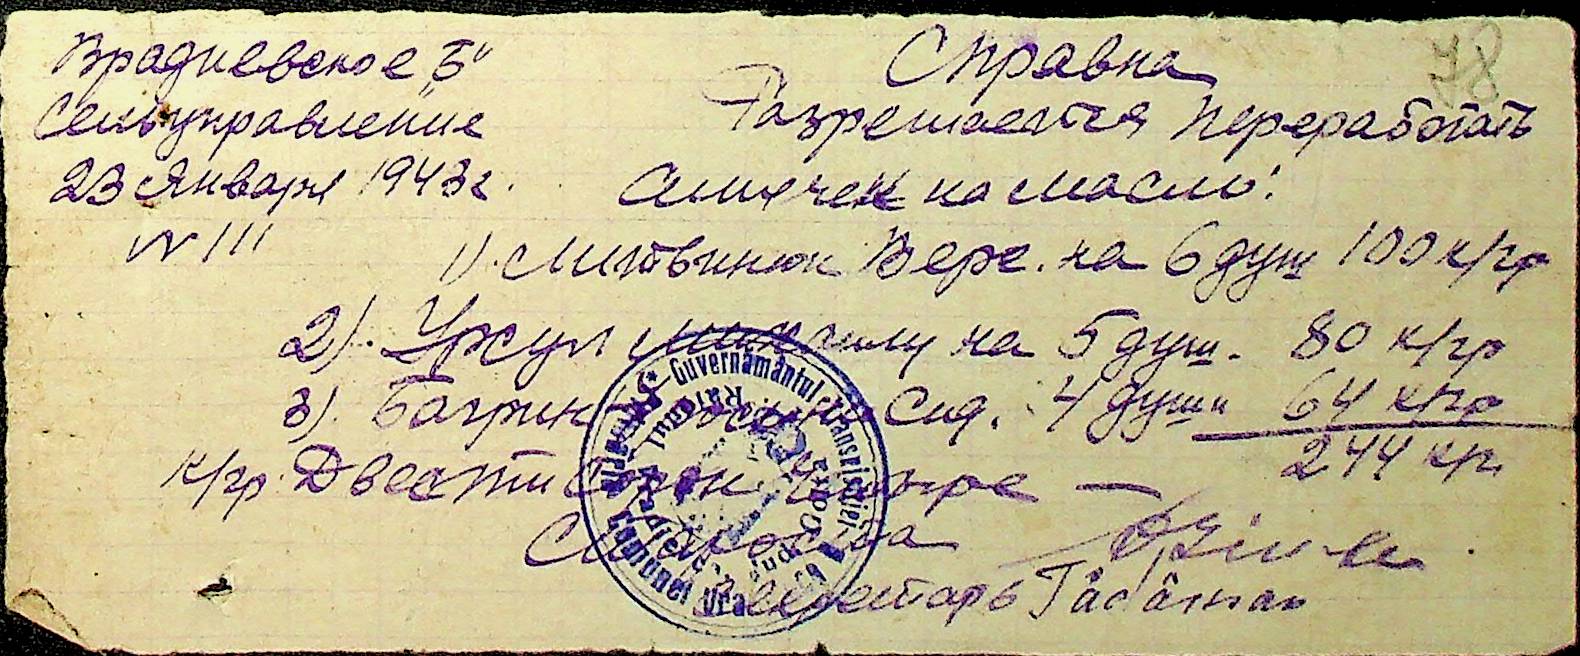 Врадиевское "Б"
Сельуправление
23 Января 1943 г.
N 111
78
Справка
Разрешается переработать
Симячек на масло:
1). Литвинюк Вере. на 6 душ 100 к/гр
2). Ужул Михаилу на 5 душ. 80 к/гр
3). Багрин Сид. 4 души 64 к/гр
244 к/гр.
к/гр. Двести Сорок Четыре —
Староста
Секретарь
* Guvernământul Transnistriei
Comunei